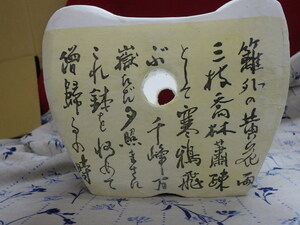 籬外の黄花両
三枝喬林蕭疎
として寒鴉飛
ぶ千峰万
嶽たゞ夕照
これ鉢を収めて
僧帰るの時